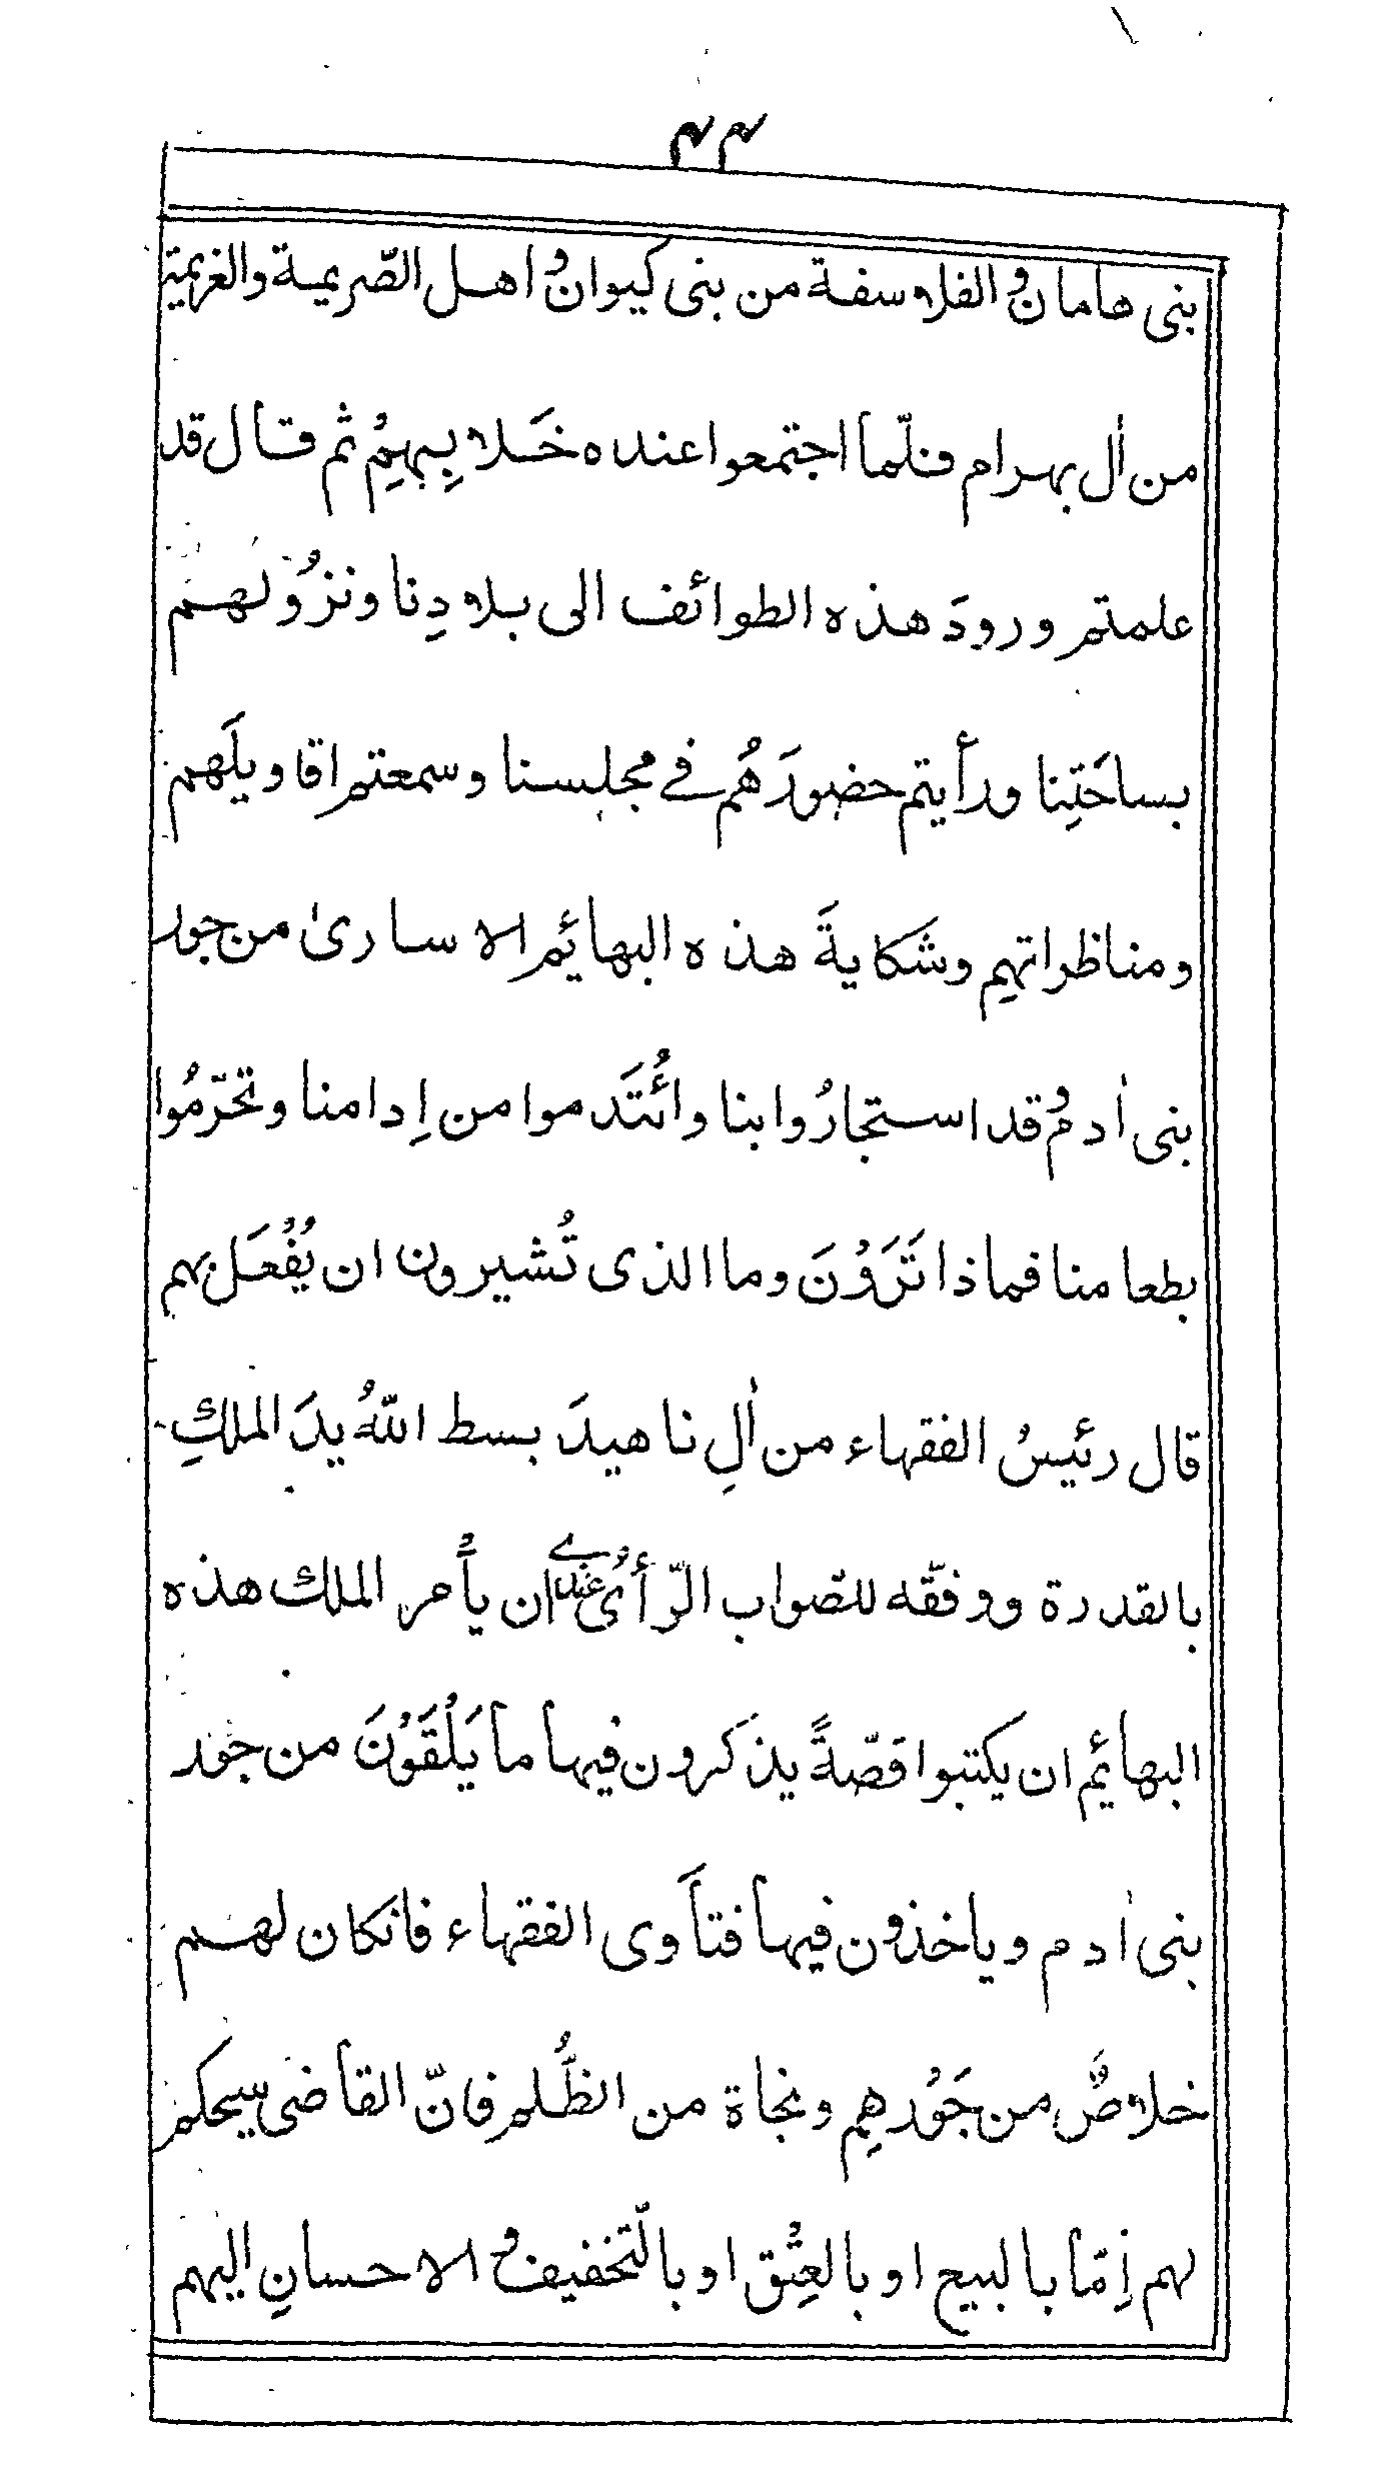 ۴۴
بنى هامان و الفلاسفة من بنى كيوان و اهل الصّريمة والغريمة
من اٰل بهرام فلّما اجتمعوا عنده خَلا بِهِمُ ثم قال قد
علمتم ورودَ هذه الطوائف الى بلادِنا ونزُولهم
بساحَتِنا ورأيتم حضورَهُم فے مجلسنا وسمعتم اقاويلَهم
ومناظراتهِم وشَكايةَ هذه البهائِم الاسارىٰ من جور
بنى اٰدم و قد استجارُوا بنا وائُتَدموا من اِدامنا وتحَرّمُوا
بطعامنا فماذا تَرَوُنَ وما الذى تُشيرون ان يُفُعَل بهم
قال رئيسُ الفقهاء من اٰلِ ناهيدَ بسط اللّٰهُ يدَ الملكِ
بالقدرة ووفقّه للصّواب الرّأىُ عندے ان يأمر الملك هذه
البهائِم ان يكتبوا قصّةً يذكرون فيها ما يَلُقَوُنَ من جور
بنى اٰدم وياخذون فيها فتاَوى الفقهاء فانكان لهم
خلاصٌ من جَوُرهِم ونجاة من الظُّلم فانّ القاضى سيحكم
لهم اِمّا بالبيع او بالعِتُق او بالتّخفيف و الاحسانِ اليهم